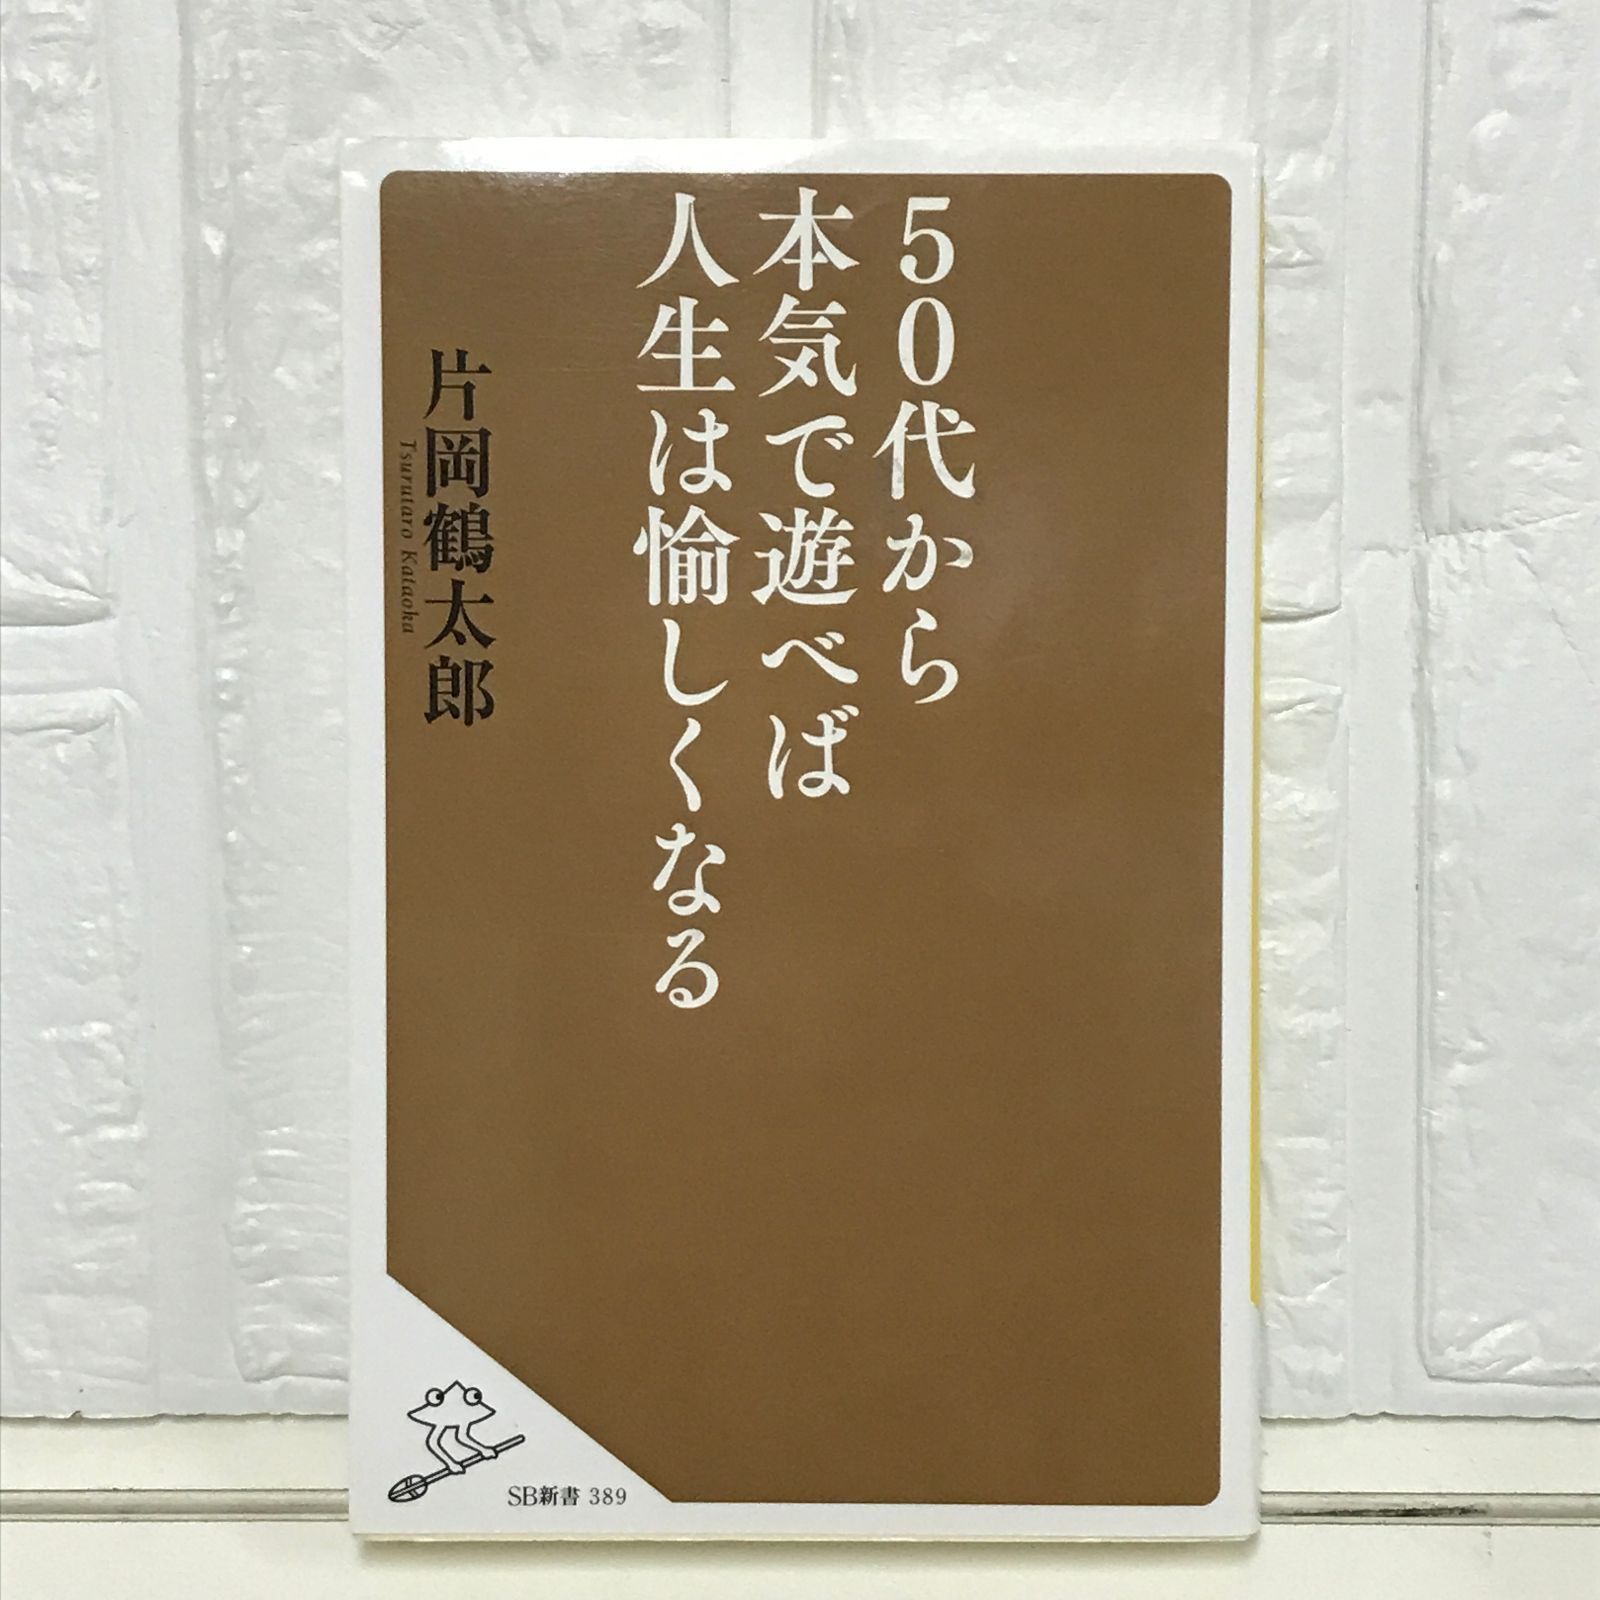 50代から
本気で遊べば
人生は愉しくなる
片岡鶴太郎
Tsurutaro Kataoka
SB新書 389